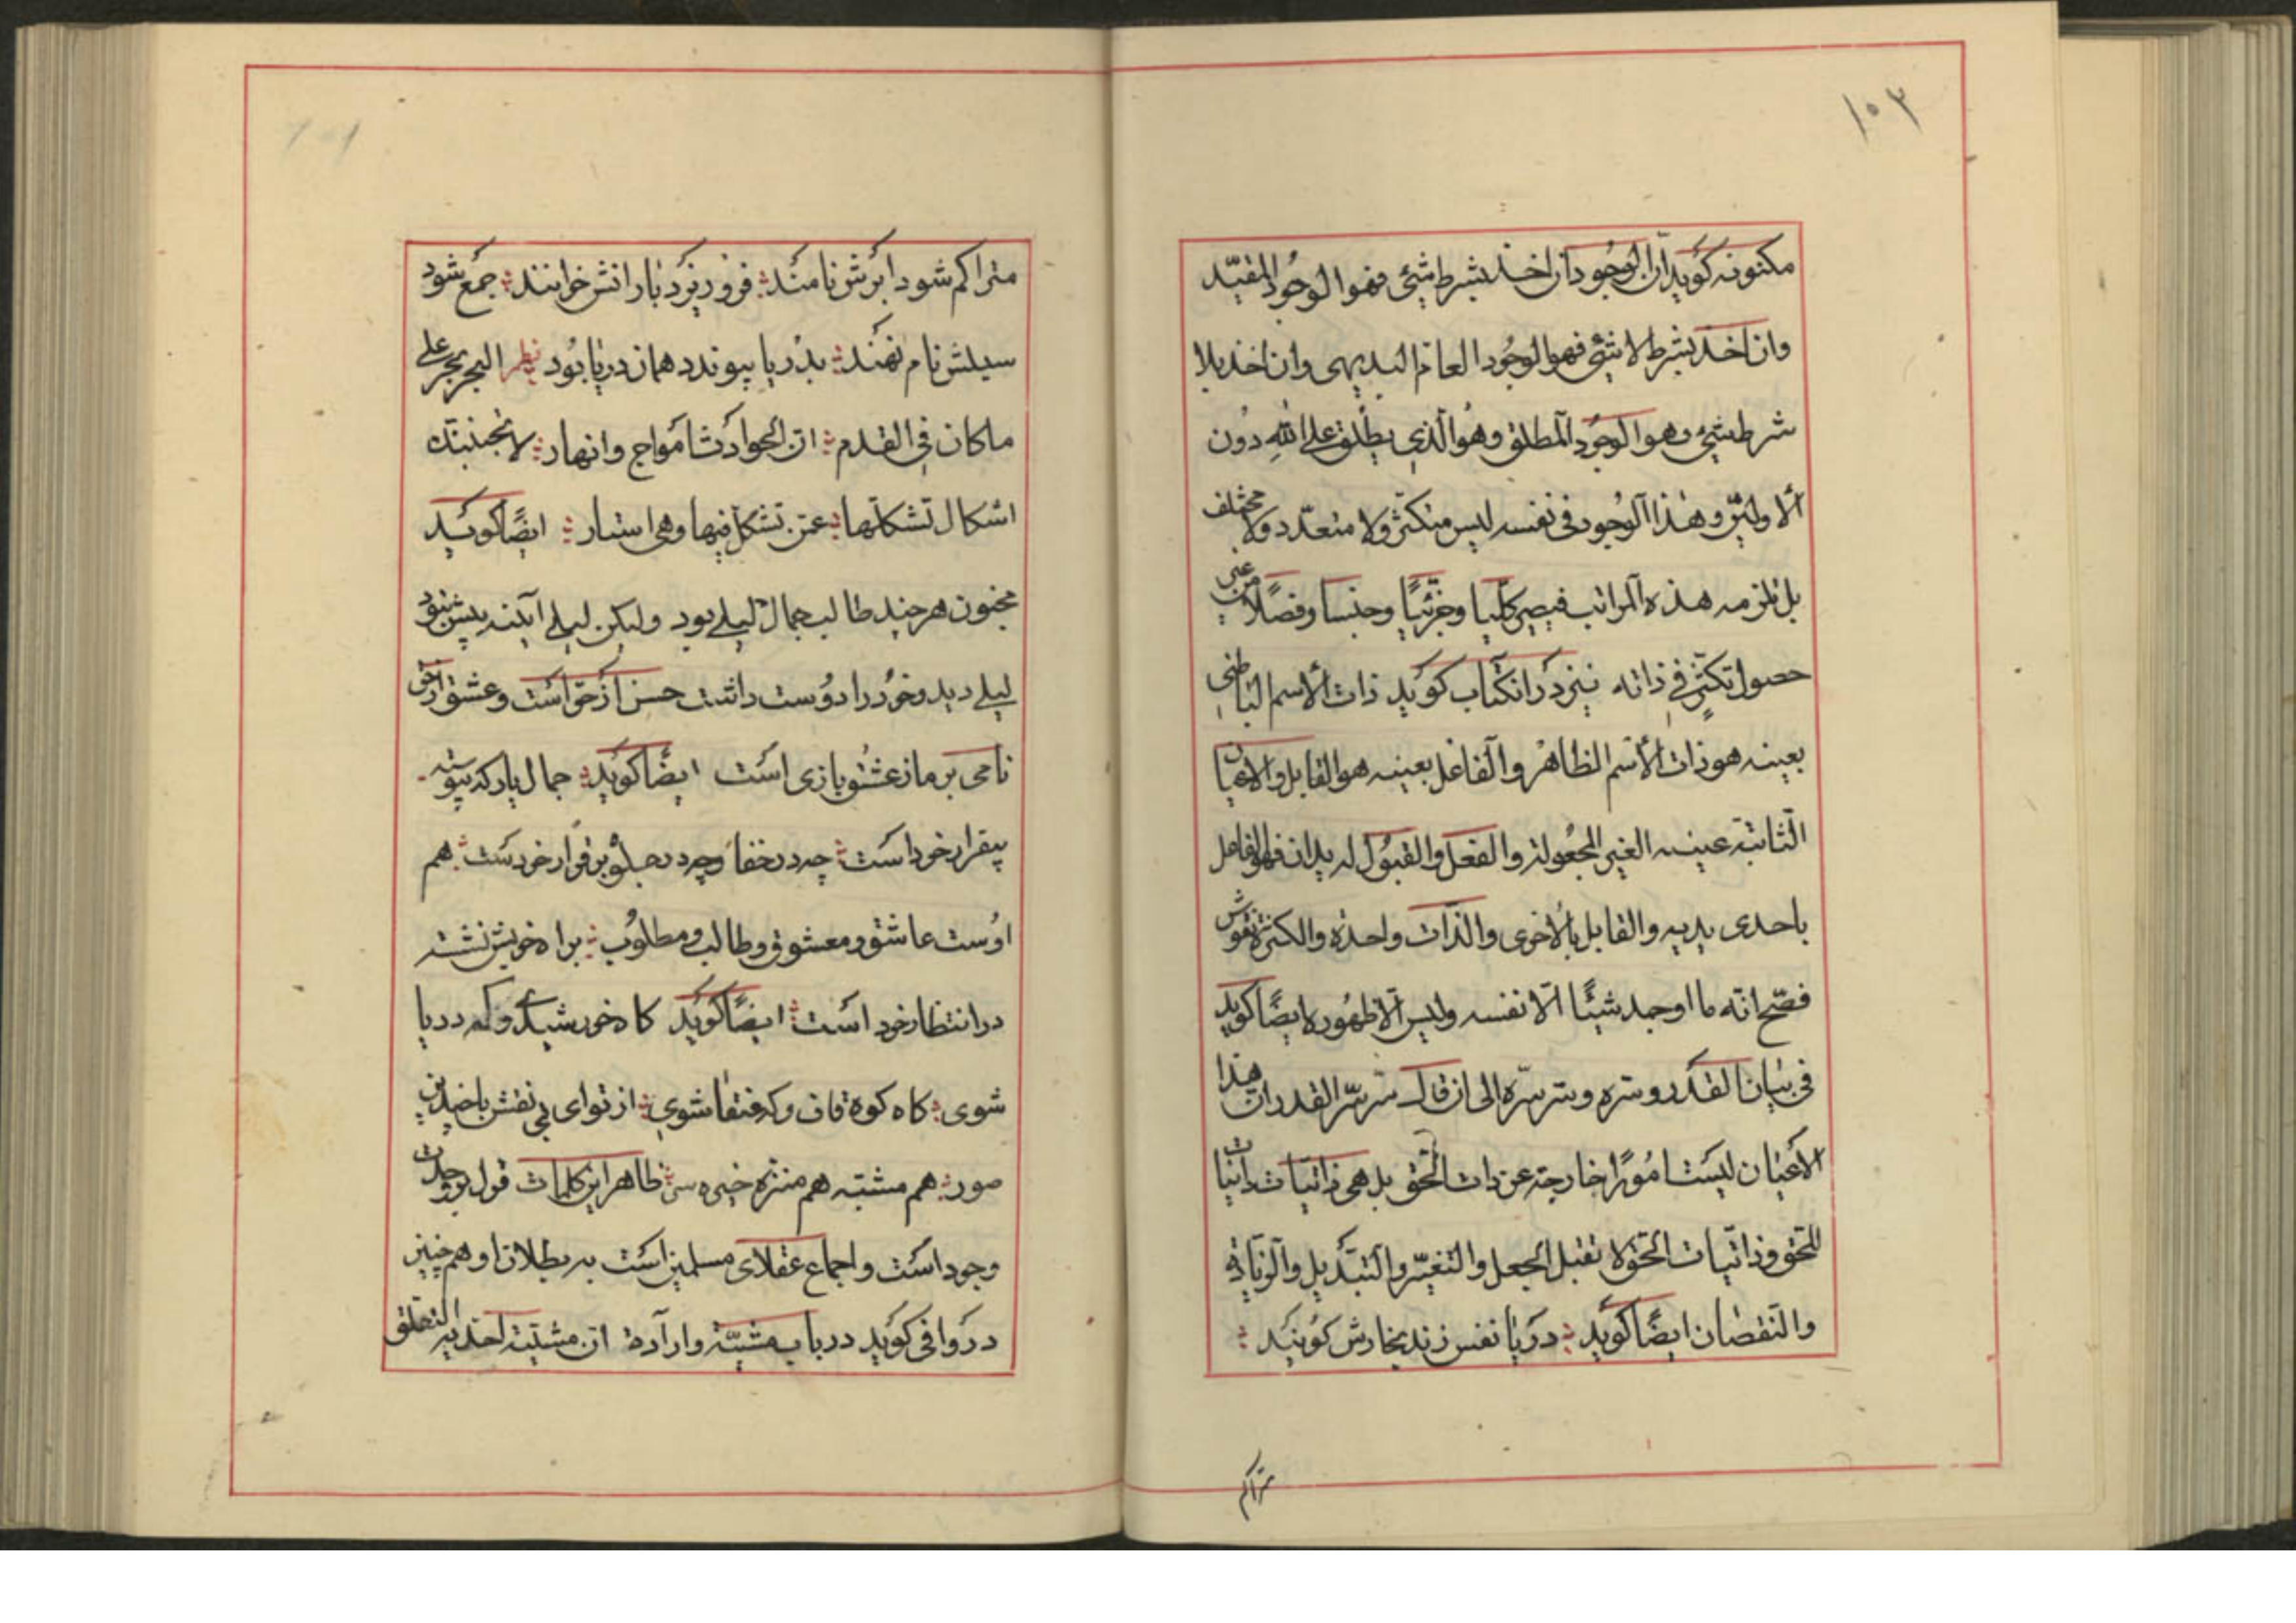 ١٠٣
مکنونه کوید ان الوجود ان اخذ بشرط شیٔ فهو الوجود المقیّد
وان اخذ بشرط لا شیٔ فهو الوجود العام البدیهی وان اخذ بلا
شرط شیٔ وهو الوجود المطلق وهو الّذی یطلق علی الله دون
الاولین وهذا الوجود فی نفسه لیس متکثر ولا متعدّد ولا مختلف
بل تلزمه هذه المراتب فیصیر کلّیا وجزئیّا وجنسا وفصلا من غیر
حصول تکثّر فی ذاته نیز در انکتاب کوید ذات الاسم الباطنی
بعینه هو ذات الاسم الظاهر والفاعل بعینه هو القابل والاعیان
الثّابتة عینه الغیر المجعولة والفعل والقبول له یدان فهو الفاعل
باحدی یدیه والقابل بالاخری والذّات واحدة والکثرة نقوش
فصّح انّه ما اوجد شیئًا الّا نفسه ولیس الّا ظهوره ایضًا کوید
فی بیان القدر وسرّه وسرّ سرّه الی ان قال سرّ سرّ القدر ان هذا
الاعیان لیست امورًا خارجة عن ذات الحق بل هی ذاتیّات
للحق وذاتیّات الحق لا تقبل الجعل والتغیّر والتبدیل والزیادة
والنقصان ایضًا کوید دریا نفس زند بخارش کویند
متراکم
متراکم شود ابرش نامند فرو ریزد بارانش خوانند جمع شود
سیلش نام نهند بدریا پیوندد همان دریا بود نظم البحر بحر علی
ما کان فی القدم انّ الحوادث امواج وانهار لا تحجبنّک
اشکال تشکلها عمّن تشکّل فیها وهی استار ایضًا کوید
مجنون هر چند طالب جمال لیلی بود ولیکن لیلی آینه پیش نبود
لیلی دید وخود را دوست داشت حسن از حق است وعشق از حق
نامی بر ما ز عشق بازی است ایضًا کوید جمال یار که پیوسته
بیقرار خود است چه در خفا وچه در جلوه برقرار خود است هم
اوست عاشق ومعشوق وطالب ومطلوب براه خویش نشسته
در انتظار خود است ایضًا کوید کاه خورشیدی و که دریا
شوی کاه کوه قاف وکه عنقا شوی از تو ای بی نقش با چندین
صور هم مشبّه هم منزه خیره سر ظاهر این کلمات قول بوحدت
وجود است واجماع عقلای مسلمین است به بطلان او همچنین
در وافی کوید در باب مشیّة وارادة انّ مشیّته احدیه التعلّق